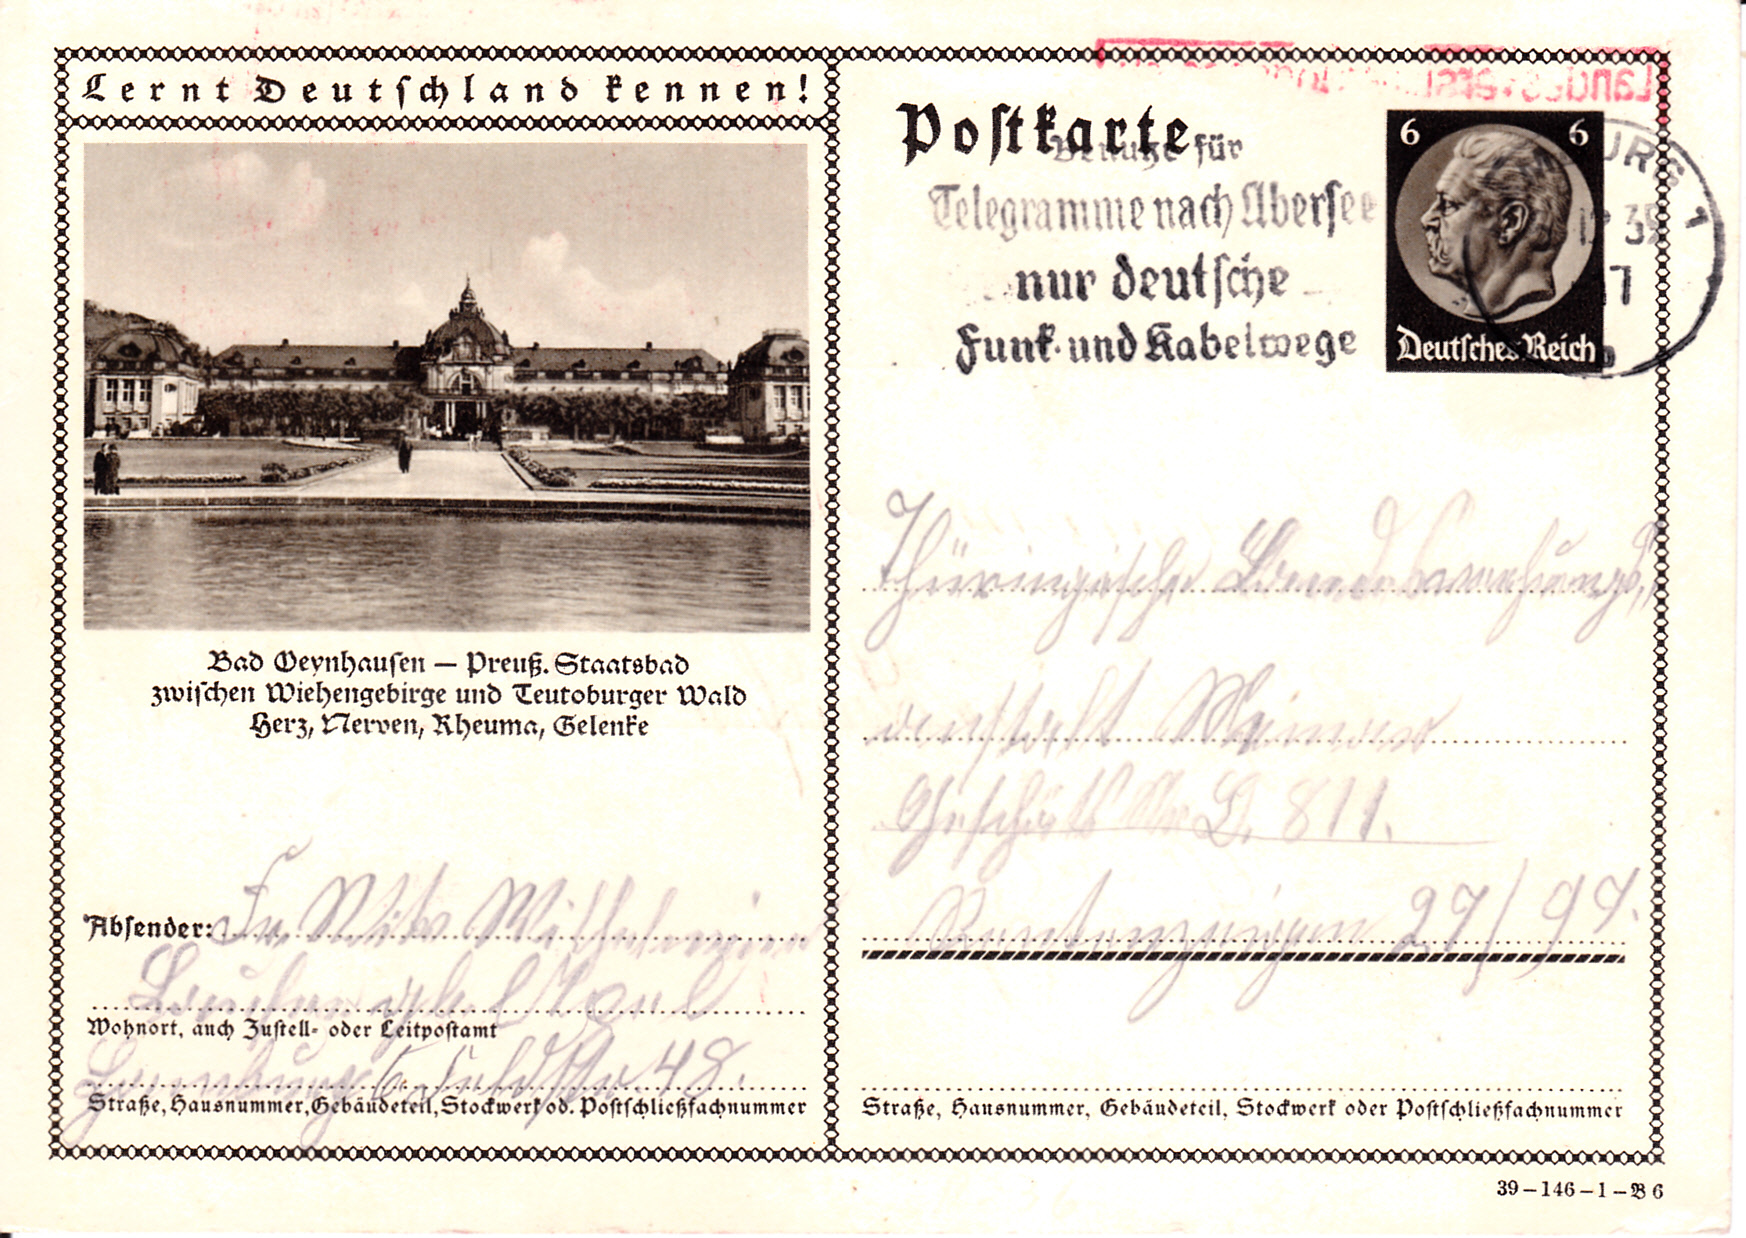 Lernt Deutschland kennen!
Bad Oeynhausen – Preuß. Staatsbad
zwischen Wiehengebirge und Teutoburger Wald
Herz, Nerven, Rheuma, Gelenke
Absender: Fr.
Wohnort, auch Zustell- oder Leitpostamt
48.
Straße, Hausnummer, Gebäudeteil, Stockwerk od. Postschließfachnummer
Postkarte
Benutze für
Telegramme nach Übersee
nur deutsche
Funk- und Kabelwege
6 6
Deutsches Reich
URG 1
39
17
Thüringische Landesversicherungs-
anstalt Weimar
Geschäfts Nr. D. 811.
Rentenzeichen 27/97.
Straße, Hausnummer, Gebäudeteil, Stockwerk oder Postschließfachnummer
39–146–1–B 6